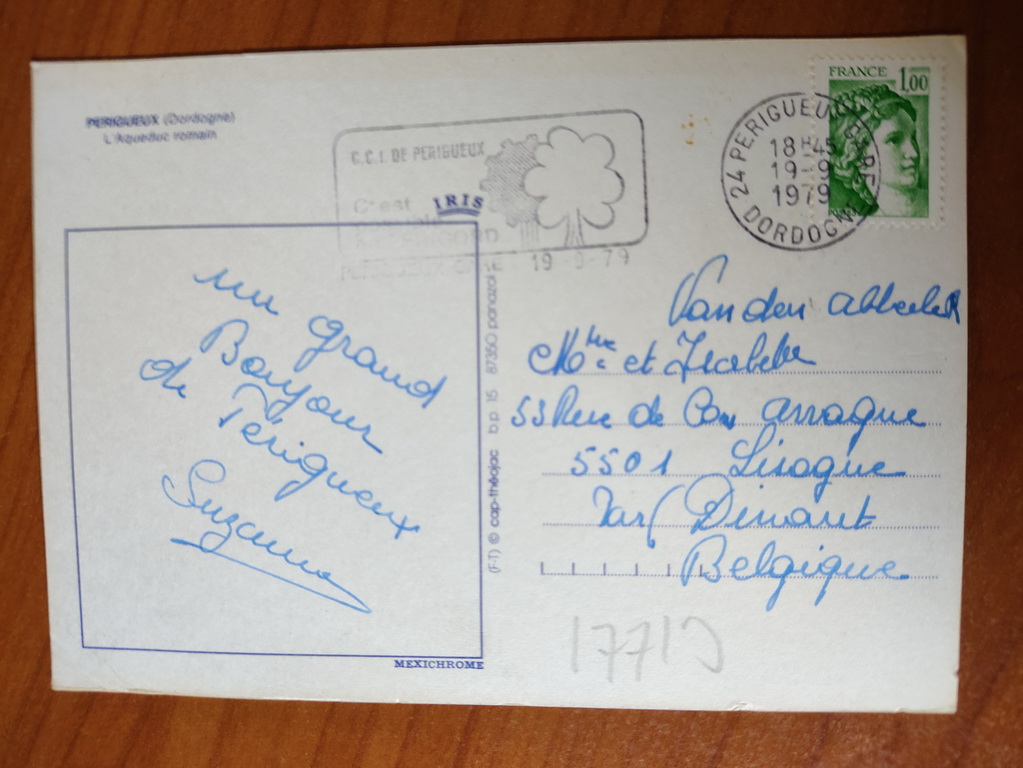 PERIGUEUX (Dordogne)
L'Aqueduc romain
C.C.I. DE PERIGUEUX
C'est
PERIGORD
PERIGUEUX-GARE 19-9-79
FRANCE 1,00
24 PERIGUEUX GARE
18H45
19-9
1979
DORDOGNE
IRIS
un grand
Bonjour
de Périgueux
Suzanne
MEXICHROME
(F-T) © cap-théojac b.p. 15 87350 panazol
Van den
et Isabelle
53 Rue de
5501 Lisogne
Par Dinant
Belgique